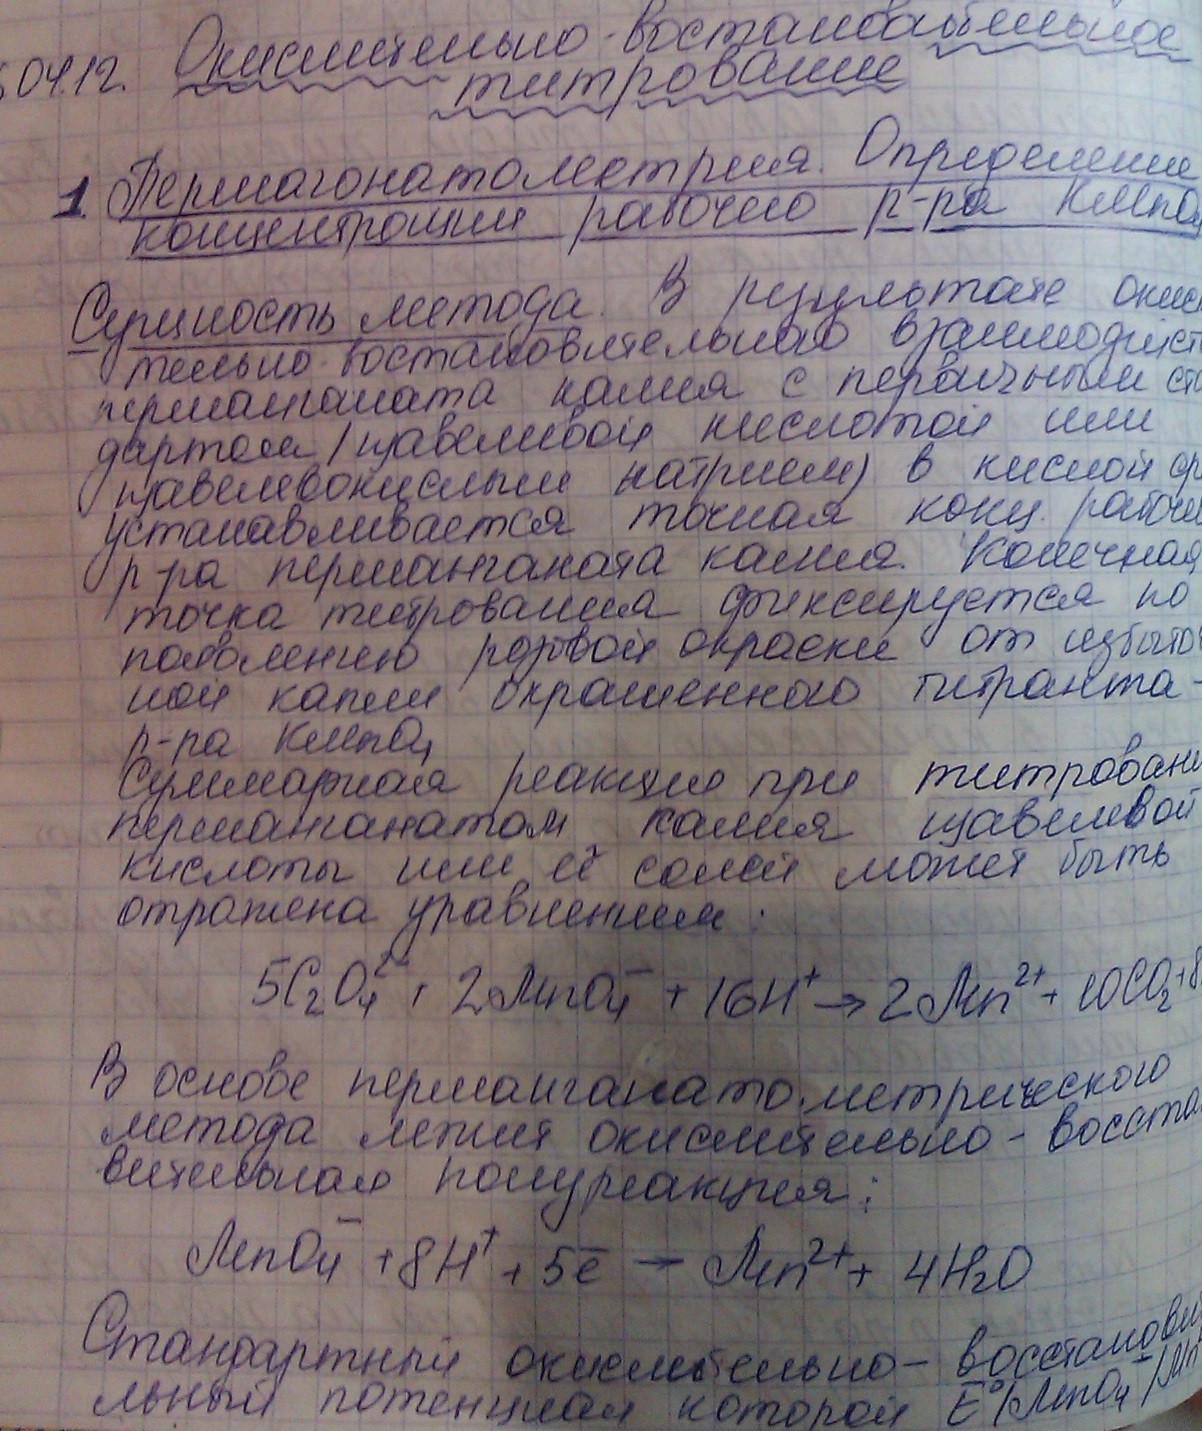 04.12. Окислительно-востановительное
титрование
1. Пермагонатометрия. Определение
концентрации рабочего р-ра KMnO4
Сущность метода. В результате окис
тельно-востановительного взаимодейст
перманганата калия с первичным ста
дартом (щавелевой кислотой или
щавелевокислым натрием) в кислой ср
устанавливается точная конц. рабоче
р-ра перманганата калия. Конечная
точка титрования фиксируется по
появлению розовой окраски от избыто
ной капли окрашенного титранта -
р-ра KMnO4
Суммарная реакция при титровани
перманганатом калия щавелевой
кислоты или её солей может быть
отражена уравнением:
5C2O4²⁻ + 2MnO4⁻ + 16H⁺ → 2Mn²⁺ + 10CO2 + 8
В основе перманганатометрического
метода лежит окислительно-восста
вительная полуреакция:
MnO4⁻ + 8H⁺ + 5e̅ → Mn²⁺ + 4H2O
Стандартный окислительно-восстанови
льный потенциал которой E°(MnO4⁻/Mn